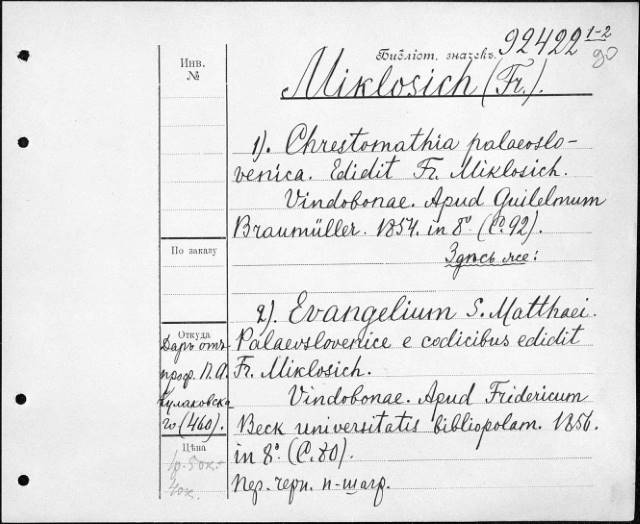 Библіот. значекъ. 92422 1-2
90
Инв.
№
Miklosich (Fr.).
1). Chrestomathia palaeoslo-
venica. Edidit Fr. Miklosich.
Vindobonae. Apud Guilelmum
Braumüller. 1854. in 8º (С. 92).
Здѣсь же:
По заказу
2). Evangelium S. Matthaei.
Palaeoslovenice e codicibus edidit
Fr. Miklosich.
Vindobonae. Apud Fridericum
Beck universitatis bibliopolam. 1856.
in 8º. (С. 80).
Пер. черн. п-шагр.
Откуда
Даръ отъ
проф. П. А.
Кулаковска
го (460).
Цѣна
1р. 50к.